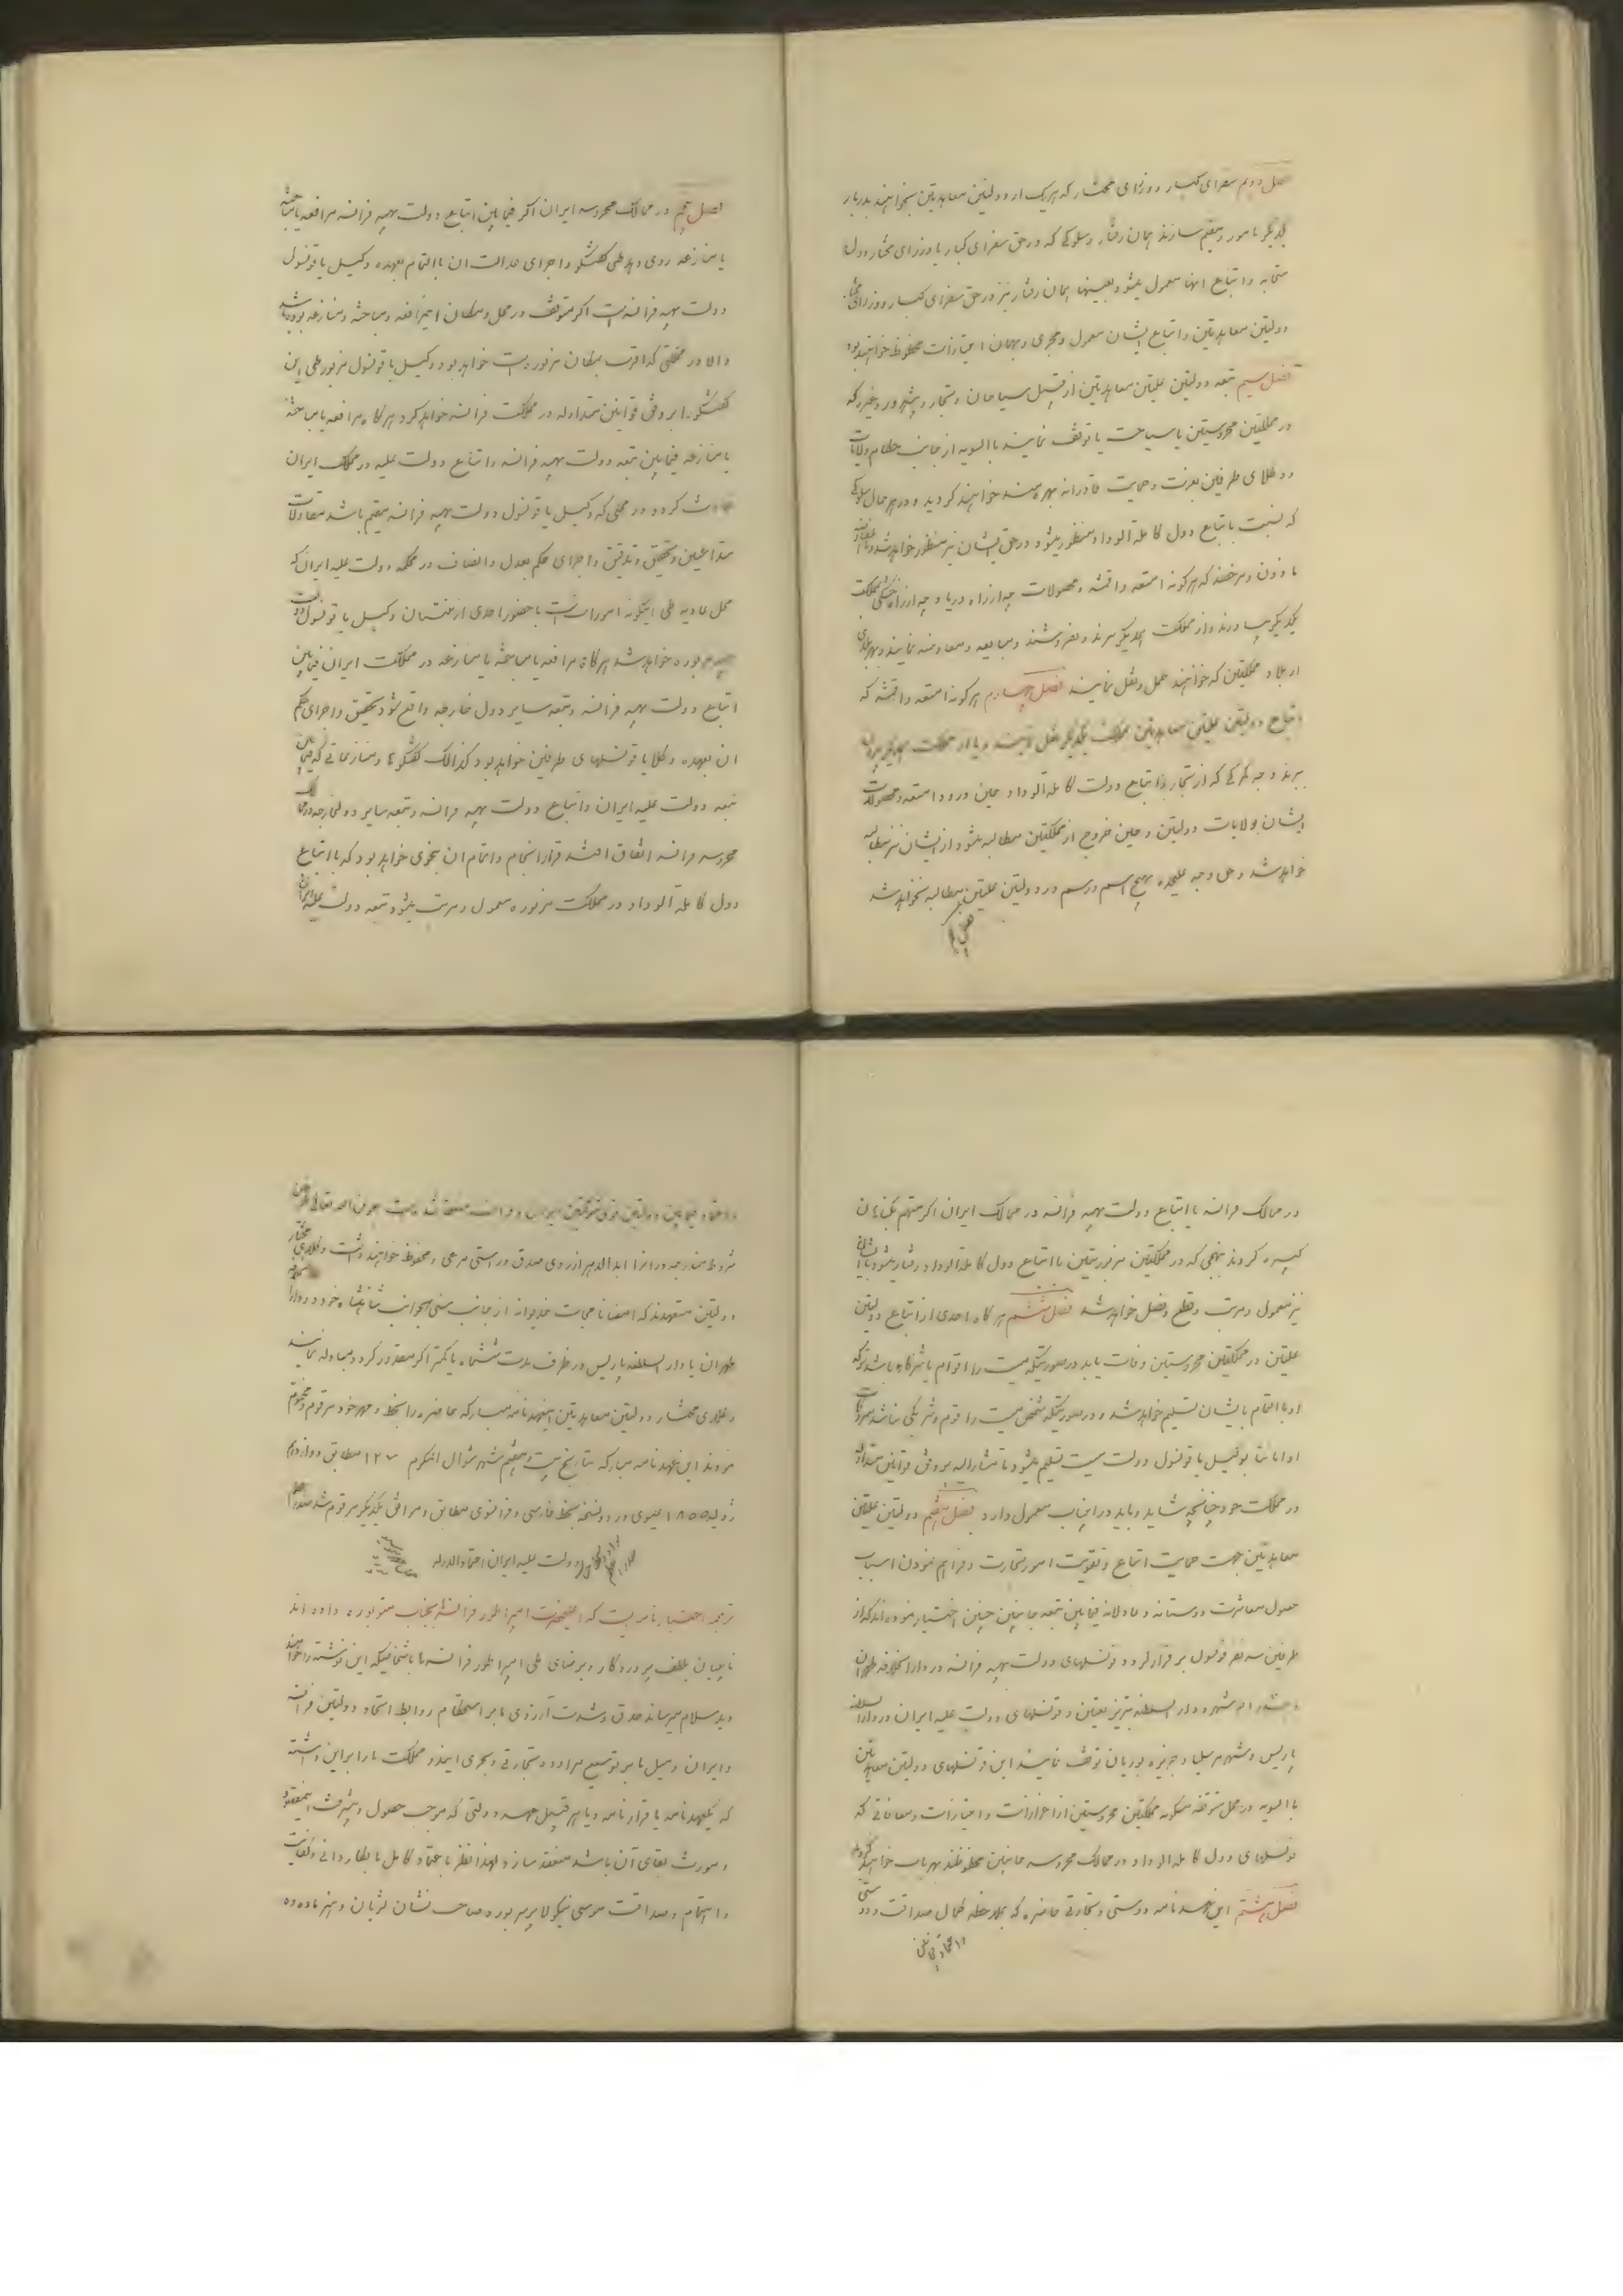 فصل دویم سفرای کبار و وزرای مختار که هر یک از دولتین معاهدتین بخواهند بدربار
یکدیگر مامور و مقیم سازند همان رفتار و سلوکی که در حق سفرای کبار یا وزرای مختار دول
متحابه و اتباع انها معمول میشود بعینها همان رفتار نیز در حق سفرای کبار و وزرای مختار
دولتین معاهدتین و اتباع ایشان معمول و مجری و بهمان امتیازات محظوظ خواهند بود
فصل سیم تبعه دولتین علیتین معاهدتین از قبیل سیاحان و تجار و پیشه ور و غیره که
در مملکتین محروستین یا سیاحت یا توقف نمایند بالسویه از جانب حکام ولایات
و وکلای طرفین بعزت و حمایت قادرانه بهره مند خواهند گردید و در هر حال سلوکی
که نسبت باتباع دول کامله الوداد منظور میشود در حق ایشان نیز منظور خواهد شد
ماذون و مرخصند که هر گونه امتعه و اقمشه و محصولات چه از راه دریا و چه از راه خشکی بمملکت
یکدیگر بیاورند و از مملکت یکدیگر ببرند و بفروشند و مبایعه و معاوضه نمایند و بهر بلدی
از بلاد مملکتین که خواهند حمل و نقل نمایند فصل چهارم هر گونه امتعه و اقمشه که
اتباع دولتین علیتین معاهدتین بمملکت یکدیگر نقل نمایند و یا از مملکت یکدیگر بیرون
ببرند وجه گمرکی که از تجار و اتباع دولت کامله الوداد و حین ورود امتعه و محصولات
ایشان بولایات دولتین و حین خروج از مملکتین مطالبه میشود از ایشان نیز مطالبه
خواهد شد و حق و وجه علیحده بهیچ اسم و رسم در دولتین علیتین مطالبه نخواهد شد
فصل پنجم در ممالک محروسه ایران اگر فیمابین اتباع دولت بهیه فرانسه مرافعه یا مباحثه
یا منازعه روی دهد طی گفتگو و اجرای عدالت ان بالتمام بعهده وکیل یا قونسول
دولت بهیه فرانسه است که متوقف در محل و مکان این مرافعه و مباحثه و منازعه بوده باشد
والا در مملکتی که اقرب بمکان مزبور است خواهد بود وکیل یا قونسول مزبور طی این
گفتگو را بر وفق قوانین متداوله در مملکت فرانسه خواهد کرد هر گاه مرافعه یا مباحثه
یا منازعه فیمابین تبعه دولت بهیه فرانسه و اتباع دولت علیه در مملکت ایران
حادث گردد در محلی که وکیل یا قونسول دولت بهیه فرانسه مقیم باشد مقاولات
متداعیین و تحقیق و تدقیق و اجرای حکم بعدل و انصاف در محکمه دولت علیه ایران که
محل عادیه طی اینگونه امورات است با حضور احدی از منتسبان وکیل یا قونسول دولت
بوده خواهد شد هر گاه مرافعه یا مباحثه یا منازعه در مملکت ایران فیمابین
اتباع دولت بهیه فرانسه و تبعه سایر دول خارجه واقع شود تحقیق و اجرای حکم
ان بعهده وکلا یا قونسلهای طرفین خواهد بود کذالک گفتگوها و منازعاتی که فیمابین
تبعه دولت علیه ایران و اتباع دولت بهیه فرانسه و تبعه سایر دول خارجه در ممالک
محروسه فرانسه اتفاق افتد قرار انجام و اتمام ان بنحوی خواهد بود که با اتباع
دول کامله الوداد در مملکت مزبوره معمول و مرتب میشود تبعه دولت علیه ایران
در ممالک فرانسه یا اتباع دولت بهیه فرانسه در ممالک ایران اگر متهم بگناهان
کبیره گردند بنهجی که در مملکتین مزبورتین با اتباع دول کامله الوداد رفتار میشود با ایشان
نیز معمول و مرتب و قطع و فصل خواهد شد فصل ششم هر گاه احدی از اتباع دولتین
علیتین در مملکتین محروستین وفات یابد در صورتیکه میت را اقوام یا شرکا بوده باشد ترکه
او بالتمام بایشان تسلیم خواهد شد و در صورتیکه شخص میت را قوم و شریکی نباشد متروکات
او امانتا بوکیل یا قونسول دولت میت تسلیم میشود تا مشارالیه بر وفق قوانین متداوله
در مملکت خود چنانچه شاید و باید در این باب معمول دارد فصل هفتم دولتین علیتین
معاهدتین جهت حمایت اتباع و تقویت امور تجارت و فراهم نمودن اسباب
حصول معاشرت دوستانه و عادلانه فیمابین تبعه جانبین چنین اختیار نموده اند که از
طرفین سه نفر قونسول برقرار گردد و قونسلهای دولت بهیه فرانسه در دارالخلافه طهران
و بندر ابوشهر و دارالسلطنه تبریز تعیین و قونسلهای دولت علیه ایران در دارالسلطنه
پاریس و شهر مرسلیا و جزیره بوربان توقف نمایند این قونسلهای دولتین معاهدتین
بالسویه در محل متوقفه مسکونه مملکتین محروستین از اعزازات و امتیازات و معافاتی که
قونسلهای دول کامله الوداد در ممالک محروسه جانبین محظوظند بهره یاب خواهند گردید
فصل هشتم این عهدنامه دوستی و تجارتی حاضره که بملاحظه کمال صداقت و دوستی
و اعتماد فیمابین دولتین قوی شوکتین ایران و فرانسه منعقد شده است بعون الله تعالی طرفین
شروط مندرجه در انرا ابد الدهر از روی صدق و راستی مرعی و محفوظ خواهند داشت وکلای مختار
دولتین متعهدند که امضا نامجات خدیوانه از جانب سنی الجوانب شاهنشاه خود در دارالخلافه
طهران یا دارالسلطنه پاریس در ظرف مدت ششماه یا کمتر اگر مقدور گردد مبادله نمایند
وکلای مختار دولتین معاهدتین این عهدنامه مبارکه حاضره را بخط و مهر خود مرقوم و مختوم
نمودند این عهدنامه مبارکه بتاریخ بیست و هفتم شهر شوال المکرم ۱۲۷ مطابق دوازدهم
ژولیه ۱۸۵۵ عیسوی در دو نسخه بخط فارسی و فرانسوی مطابق و موافق یکدیگر مرقوم شد
دولت علیه ایران اعتمادالدوله
ترجمه اختیار نامه ایست که اعلیحضرت امپراطور فرانسه بجناب مسیو بوره داده اند
ناپلیان بلطف پروردگار و برضای ملی امپراطور فرانسه ها باشخاصیکه این نوشته را خواهند
دید سلام میرساند صدق و شدت آرزوی ما بر استحکام روابط اتحاد دولتین فرانسه
و ایران و میل ما بر توسیع مراوده تجارتی و بحری ایندو مملکت ما را بر این داشته
که یکعهدنامه یا قرارنامه و یا هر قبیل عهد دولتی که موجب حصول و پیشرفت اینمقصود
و مورث بقای آن باشد منعقد سازد لهذا نظر باعتماد کامل ما بکاردانی و کفایت
و اهتمام و صداقت موسی نیکولا پرسپر بوره صاحب نشان لژیان دهنر ماده ده